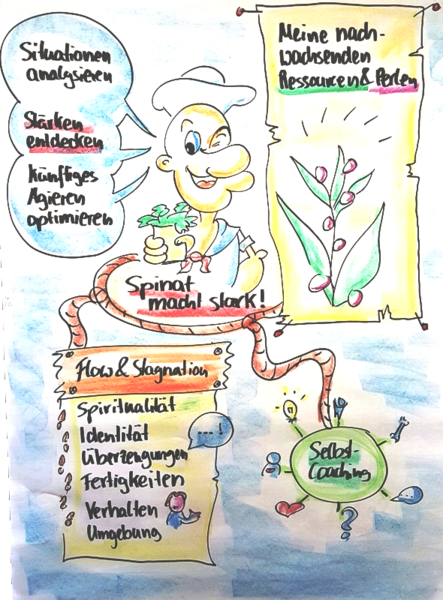 Situationen
analysieren
Stärken
entdecken
künftiges
Agieren
optimieren
Meine nach-
wachsenden
Ressourcen & Perlen
Spinat
macht stark!
Flow & Stagnation
Spiritualität
Identität
Überzeugungen
Fertigkeiten
Verhalten
Umgebung
...!
Selbst-
Coaching
?